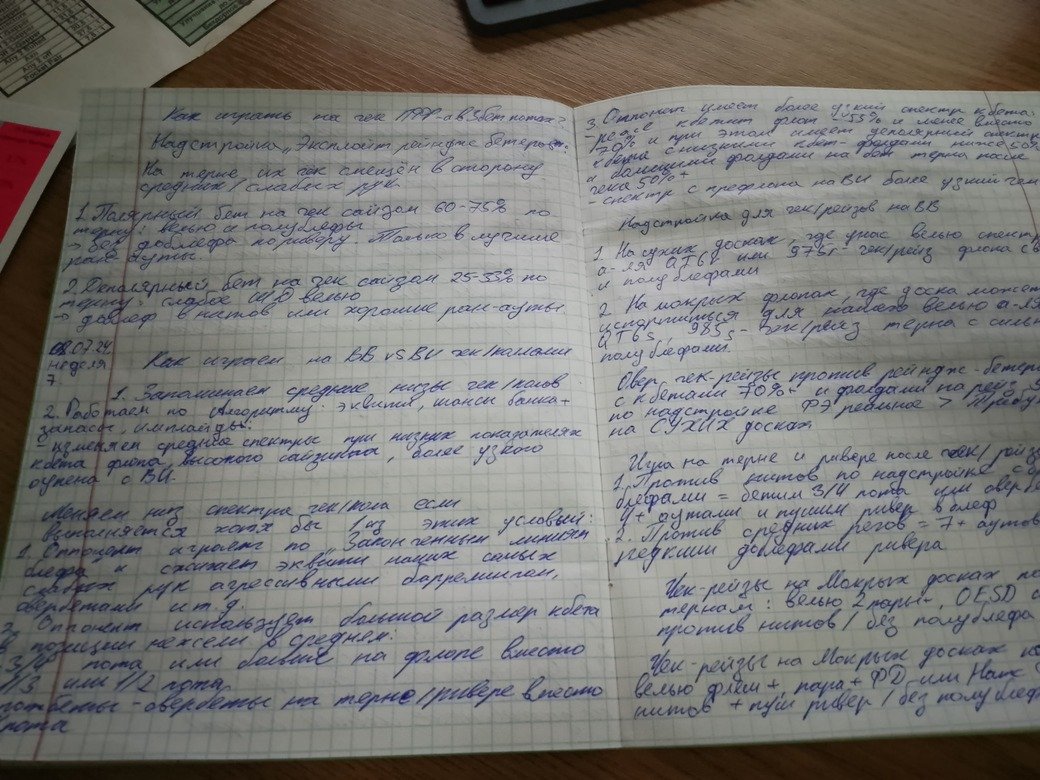 Как играть на чек ПФР-а в 3бет потах?
Надстройка „Эксплойт рейндж бетеров":
На терне их чек смещён в сторону
средних/слабых рук.
1. Полярный бет на чек сайзом 60-75% по
терну: велью и полублефы
→ без доблефа по риверу. Только в лучшие
ран-ауты.
2. Деполярный бет на чек сайзом 25-33% по
терну: слабое ШД велью
→ доблеф в нитов или хорошие ран-ауты.
08.07.24
неделя
7.
Как играем на BB vs BU чек/коллами
1. Запоминаем средние низы чек/колов
2. Работаем по алгоритму: эквити, шансы банка +
запасы, имплайды:
изменяем средние спектры при низких показателях
кбета флопа, высокого сайзинга, более узкого
оупена с BU.
Меняем низ спектра чек/кола если
выполняется хотя бы 1 из этих условий:
1. Оппонент играет по „Законченным линиям
блефа и сжигает эквити наших самых
слабых рук агрессивными баррелингом,
овербетами и т.д.
2. Оппонент использует большой размер кбета
в позиции нежели в среднем:
3/4 пота или больше на флопе вместо
1/3 или 1/2 пота
потбеты - овербеты на терне/ривере вместо
пота
3. Оппонент имеет более узкий спектр кбета:
- реже кбетит флоп %55% и менее вместо
70% и при этом имеет деполярный спектр
кбета с низкими кбет-фолдами ниже 50%
и большими фолдами на бет терна после
чека 50%+
- спектр с префлопа на BU более узкий чем
Надстройка для чек/рейзов на BB
1. На сухих досках, где у нас велью спектр
а-ля QT6r или 975r чек/рейз флопа с в
и полублефами
2. На мокрых флопах, где доска может
испортиться для нашего велью а-ля
QT6s, 985s - чек/рейз терна с силь
полублефами.
Овер чек-рейзы против рейндж-бетеро
с кбетами 70%+ и фолдами на рейз 5
по надстройке ФЭ реальное > Требу
на СУХИХ досках
Игра на терне и ривере после чек/рейза
1. Против нитов по надстройке с
блефами = бетим 3/4 пота или оверб
4+ аутами и пушим ривер в блеф
2. Против средних регов = 7+ аутов
редкими доблефами ривера
Чек-рейзы на Мокрых досках по
тернам: велью 2 пары+, OESD
против нитов / без полублефа
Чек-рейзы на Мокрых досках по
велью флеш+, пара+ФД или Натс
нитов + пуш ривер / без полублеф